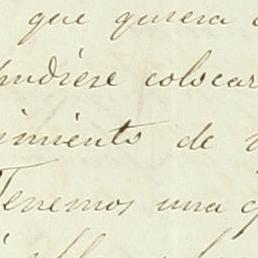 que quisiera
pudiese colocar
imiento de
Tenemos una q